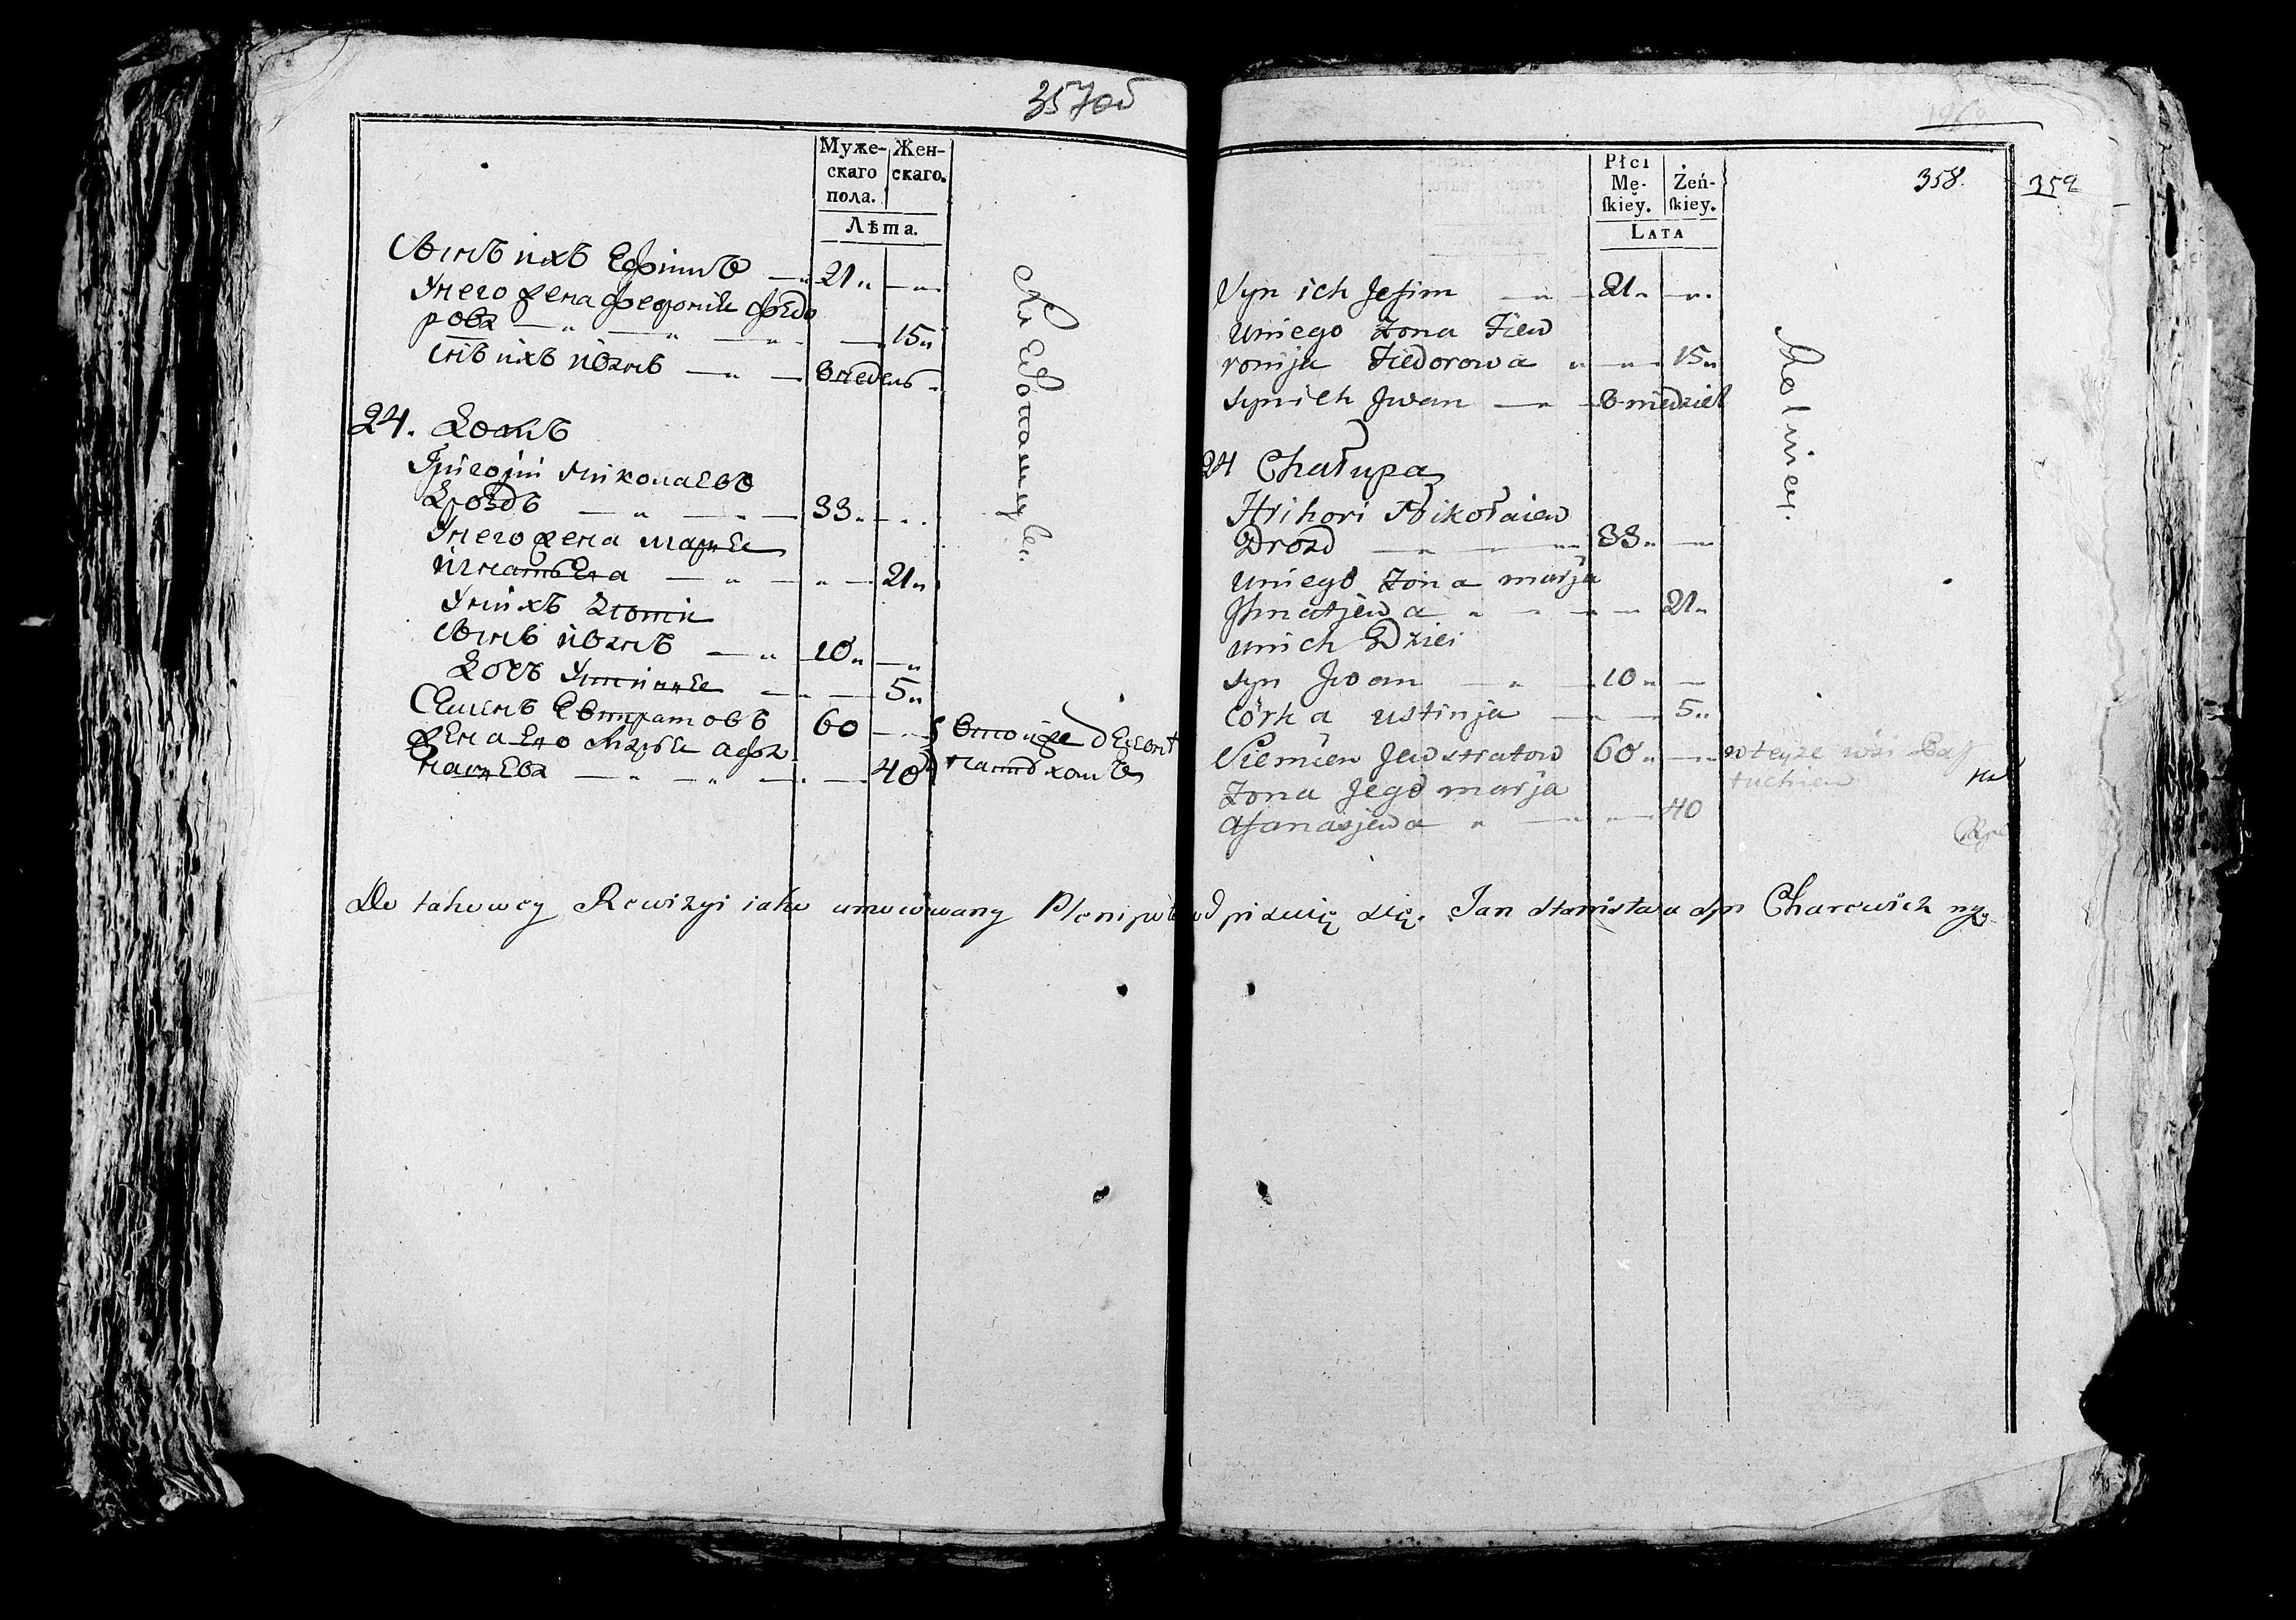 357об
Муже-
скаго
пола.
Жен-
скаго.
Лѣта.
Сынъ ихъ Ефимъ — 21 „ — „
У него жена Февронія Федо
рова — „ — „ — 15 „
Сынъ ихъ Иванъ — „ — 8 недель
24. Домъ
Григорій Николаевъ
Дроздъ — „ — „ — 33 „ — „
У него жена Марья
Игнатьева — „ — „ — 21 „
У нихъ Дети
Сынъ Иванъ — „ — 10 „ — „
Дочь Устинья — „ — 5 „
Семенъ Евстратовъ 60 — „
Жена Его Марья Афа
насьева — „ — „ — 40
в той же деревн
358.
359
Płci
Mę-
skiey.
Żeń-
skiey.
Lata
Syn ich Jefim — „ — 21 „ — „
u niego Żona Fiew
ronija Fiedorowa „ — „ — 15 „
Syn ich Jwan — „ — 8 niedziel
24 Chałupa
Hrihori Mikołaiew
Drozd — „ — „ — 33 „ —
u niego Żona marja
Jhnatjewa „ „ — 21 „
u nich Dziei
Syn Jwan — „ — 10 „ —
Córka ustinja — „ — 5 „
Siemien Jewstratow 60 „ — „ w teyże wsi
Żona Jego marja
afanasjewa „ — „ — 40
Rolnicy.
Do takowey Rewizyi iako umocowany Plenipotent podpisuię się. Jan Stanisława syn Charewicz